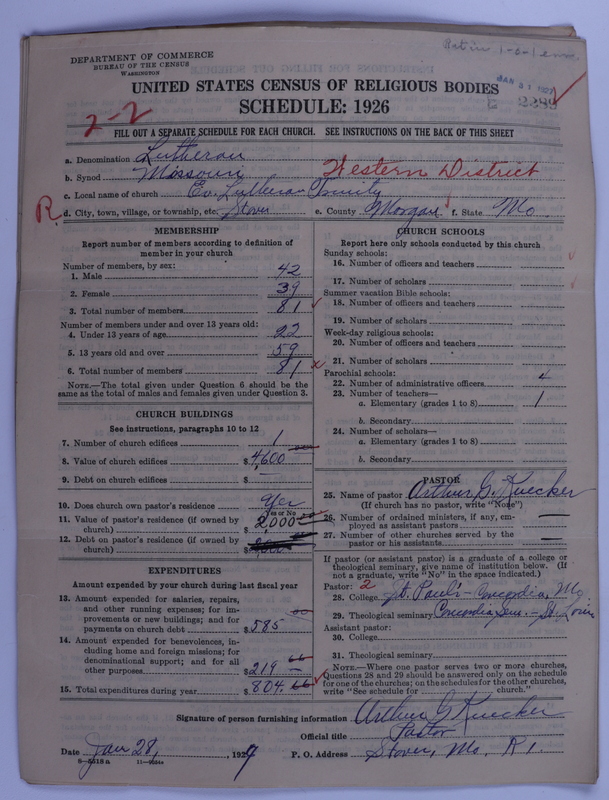 DEPARTMENT OF COMMERCE
BUREAU OF THE CENSUS
WASHINGTON
UNITED STATES CENSUS OF RELIGIOUS BODIES
SCHEDULE: 1926
2-2
FILL OUT A SEPARATE SCHEDULE FOR EACH CHURCH. SEE INSTRUCTIONS ON THE BACK OF THIS SHEET
a. Denomination Lutheran
b. Synod Missouri Western District
c. Local name of church Ev. Lutheran Trinity
R. d. City, town, village, or township, etc. Stover e. County Morgan f. State Mo
MEMBERSHIP
Report number of members according to definition of
member in your church
Number of members, by sex:
1. Male 42
2. Female 39
3. Total number of members 81
Number of members under and over 13 years old:
4. Under 13 years of age 22
5. 13 years old and over 59
6. Total number of members 81
NOTE.—The total given under Question 6 should be the
same as the total of males and females given under Question 3.
CHURCH BUILDINGS
See instructions, paragraphs 10 to 12
7. Number of church edifices 1
8. Value of church edifices $4,600
9. Debt on church edifices $ —
10. Does church own pastor's residence Yes
Yes or No
11. Value of pastor's residence (if owned by
church) $2,000
12. Debt on pastor's residence (if owned by
church) $
EXPENDITURES
Amount expended by your church during last fiscal year
13. Amount expended for salaries, repairs,
and other running expenses; for im-
provements or new buildings; and for
payments on church debt $585
14. Amount expended for benevolences, in-
cluding home and foreign missions; for
denominational support; and for all
other purposes $219 66
15. Total expenditures during year $804.66
CHURCH SCHOOLS
Report here only schools conducted by this church
Sunday schools:
16. Number of officers and teachers
17. Number of scholars
Summer vacation Bible schools:
18. Number of officers and teachers
19. Number of scholars
Week-day religious schools:
20. Number of officers and teachers
21. Number of scholars
Parochial schools:
22. Number of administrative officers 4
23. Number of teachers—
a. Elementary (grades 1 to 8) 1
b. Secondary
24. Number of scholars—
a. Elementary (grades 1 to 8)
b. Secondary
PASTOR
25. Name of pastor Arthur G. Kuecker
(If church has no pastor, write "None")
26. Number of ordained ministers, if any, em-
ployed as assistant pastors —
27. Number of other churches served by the
pastor or his assistants —
If pastor (or assistant pastor) is a graduate of a college or
theological seminary, give name of institution below. (If
not a graduate, write "No" in the space indicated.)
Pastor: 2
28. College St. Paul's - Concordia, Mo.
29. Theological seminary Concordia Sem. - St. Louis
Assistant pastor:
30. College
31. Theological seminary
NOTE.—Where one pastor serves two or more churches,
Questions 28 and 29 should be answered only on the schedule
for one of the churches; on the schedules for the other churches,
write "See schedule for church."
Signature of person furnishing information Arthur G Kuecker
Official title Pastor
Date Jan 28, 1929 P. O. Address Stover, Mo. R 1.
8-5518a 11-9224a